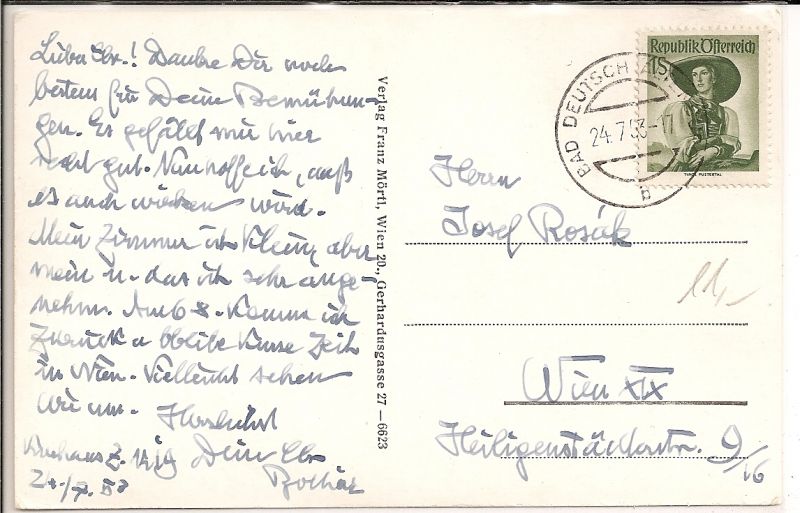 Lieber Obr.! Danke Dir noch
bestens für Deine Bemühun-
gen. Es gefällt mir hier
recht gut. Nun hoffe ich, daß
es auch wirken wird.
Mein Zimmer ist klein, aber
mein u. das ist sehr ange-
nehm. Am 6. 8. komme ich
zurück u. bleibe kurze Zeit
in Wien. Vielleicht sehen
wir uns. Herzlichst
Kurhaus Z.
Dein Obr.
24./7. 53
Verlag Franz Mörtl, Wien 20., Gerhardusgasse 27 — 6623
Republik Österreich
1S
TIROL PUSTERTAL
BAD DEUTSCH
24.7.53-17
b
Herrn
Josef Rosák
11,-
Wien XIX
Heiligenstädterstr. 9/16